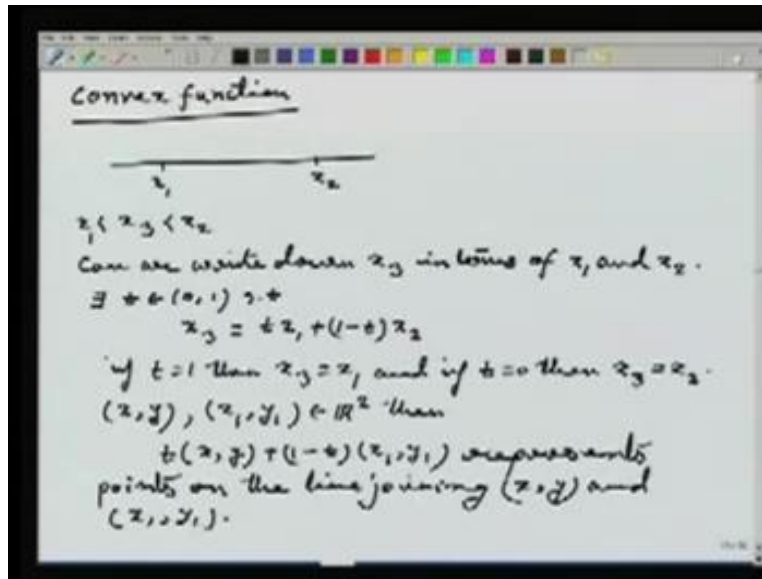 Convex function
x₁ x₂
x₁ < x₃ < x₂
Can we write down x₃ in terms of x₁ and x₂.
∃ t ∈ (0, 1) s.t
x₃ = t x₁ + (1-t) x₂
if t=1 then x₃ = x₁ and if t=0 then x₃ = x₂.
(x, y), (x₁, y₁) ∈ ℝ² then
t(x, y) + (1-t)(x₁, y₁) represents
points on the line joining (x, y) and
(x₁, y₁).